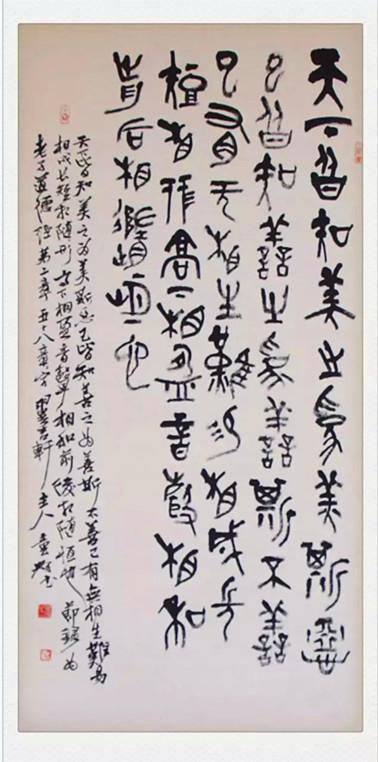 天下皆知美之為美斯惡
已皆知善之為善斯不善
已有无相生難易相成長
短相形高下相盈音聲相和
前后相隨恒也
天下皆知美之为美斯恶已皆知善之为善斯不善已有無相生難易
相成长短相隨形高下相盈音聲相和前後相隨恒也節録为
老子道德经第二章五十八章字 軒主人